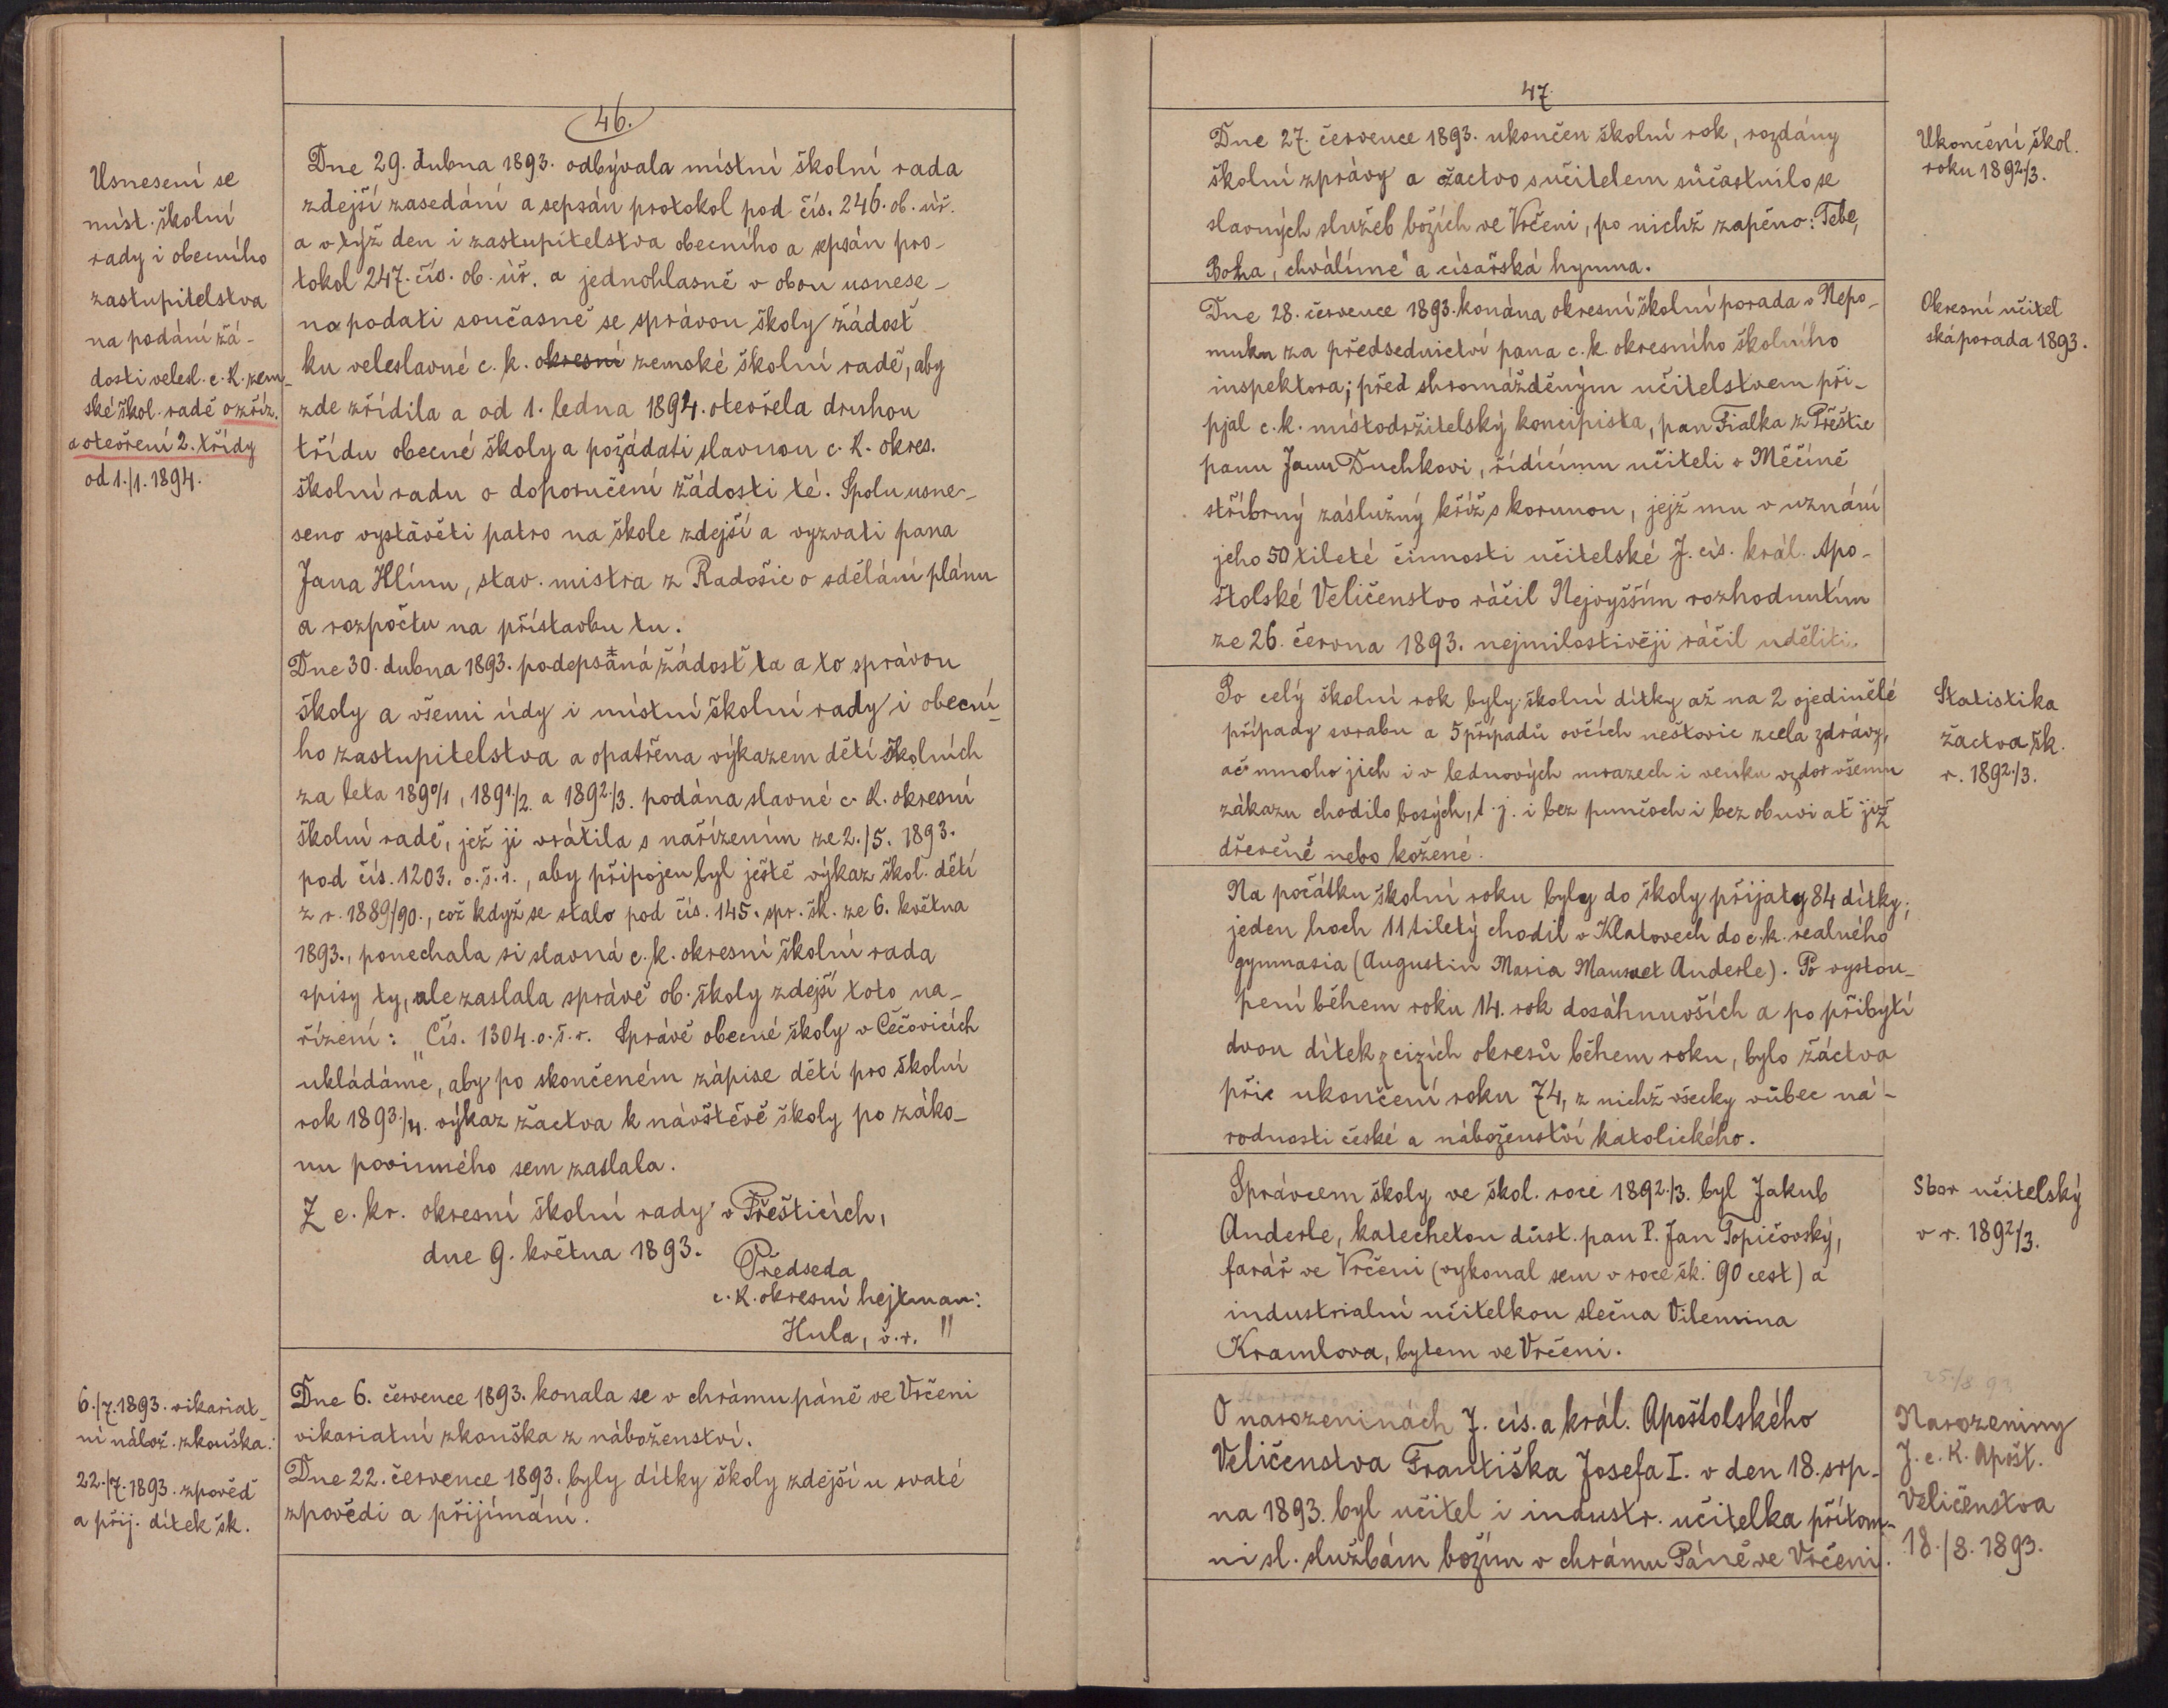 46.
Usnesení se
míst. školní
rady i obecního
zastupitelstva
na podání žá-
dosti velesl. c. k. zem-
ské škol. radě o zříz.
a otevření 2. třídy
od 1./1. 1894.
Dne 29. dubna 1893. odbývala místní školní rada
zdejší zasedání a sepsán protokol pod čís. 246. ob. úř.
a v týž den i zastupitelstva obecního a sepsán pro-
tokol 247. čís. ob. úř. a jednohlasně v obou usnese-
no podati současně se správou školy žádosť
ku veleslavné c. k. okresní zemské školní radě, aby
zde zřídila a od 1. ledna 1894. otevřela druhou
třídu obecné školy a požádati slavnou c. k. okres.
školní radu o doporučení žádosti té. Spolu usne-
seno vystavěti patro na škole zdejší a vyzvati pana
Jana Hlínu, stav. mistra z Radošic o sdělání plánu
a rozpočtu na přístavbu tu.
Dne 30. dubna 1893. podepsaná žádosť ta a to správou
školy a všemi údy i místní školní rady i obecní-
ho zastupitelstva a opatřena výkazem dětí školních
za leta 1890/1, 1891/2. a 1892/3. podána slavné c. k. okresní
školní radě, jež ji vrátila s nařízením ze 2./5. 1893.
pod čís. 1203. o. š. r., aby připojen byl ještě výkaz škol. dětí
z r. 1889/90., což když se stalo pod čís. 145. spr. šk. ze 6. května
1893., ponechala si slavná c. k. okresní školní rada
spisy ty, ale zaslala správě ob. školy zdejší toto na-
řízení: „Čís. 1304. o. š. r. Správě obecné školy v Čečovicích
ukládáme, aby po skončeném zápise dětí pro školní
rok 1893./4. výkaz žactva k návštěvě školy po záko-
nu povinného sem zaslala.
Z c. kr. okresní školní rady v Přešticích,
dne 9. května 1893.
Předseda
c. k. okresní hejtman:
Hula, v. r. "
6./7. 1893. vikariat-
ní nábož. zkouška.
Dne 6. července 1893. konala se v chrámu páně ve Vrčeni
vikariatní zkouška z náboženství.
22./7. 1893. zpověď
a přij. dítek šk.
Dne 22. července 1893. byly dítky školy zdejší u svaté
zpovědi a přijímání.
47
Dne 27. července 1893. ukončen školní rok, rozdány
školní zprávy a žactvo s učitelem súčastnilo se
slavných služeb božích ve Vrčeni, po nichž zapěno: Tebe,
Boha, chválíme" a císařská hymna.
Ukončení škol.
roku 1892/3.
Dne 28. července 1893. konána okresní školní porada v Nepo-
muku za předsednictví pana c. k. okresního školního
inspektora; před shromážděným učitelstvem při-
pjal c. k. místodržitelský koncipista, pan Fialka z Přeštic
panu Janu Duchkovi, řídícímu učiteli v Měčíně
stříbrný záslužný kříž s korunou, jejž mu v uznání
jeho 50 tileté činnosti učitelské J. cís. král. Apo-
štolské Veličenstvo ráčil Nejvyšším rozhodnutím
ze 26. června 1893. nejmilostivěji ráčil uděliti.
Okresní učitel
ská porada 1893.
Po celý školní rok byly školní dítky až na 2 ojedinělé
případy svrabu a 5 případů ovčích neštovic zcela zdrávy,
ač mnoho jich i v lednových mrazech i venku vzdor všemu
zákazu chodilo bosých, t. j. i bez punčoch i bez obuvi ať již
dřevěné nebo kožené.
Statistika
žactva šk.
r. 1892./3.
Na počátku školní roku byly do školy přijaty 84 dítky;
jeden hoch 11tiletý chodil v Klatovech do c. k. realného
gymnasia (Augustin Maria Anderle). Po vystou-
pení během roku 14. rok dosáhnuvších a po přibytí
dvou dítek z cizích okresů během roku, bylo žáctva
při ukončení roku 74, z nichž všecky vůbec ná-
rodnosti české a náboženství katolického.
Správcem školy ve škol. roce 1892./3. byl Jakub
Anderle, katechetou důst. pan P. Jan Topičovský,
farář ve Vrčeni (vykonal sem v roce šk. 90 cest) a
industrialní učitelkou slečna Vilemina
Kramlova, bytem ve Vrčeni.
Sbor učitelský
v r. 1892/3.
O narozeninách J. cís. a král. Apoštolského
Veličenstva Františka Josefa I. v den 18. srp-
na 1893. byl učitel i industr. učitelka přítom-
ni sl. službám božím v chrámu Páně ve Vrčeni.
Narozeniny
J. c. K. Apošt.
Veličenstva
18./8. 1893.